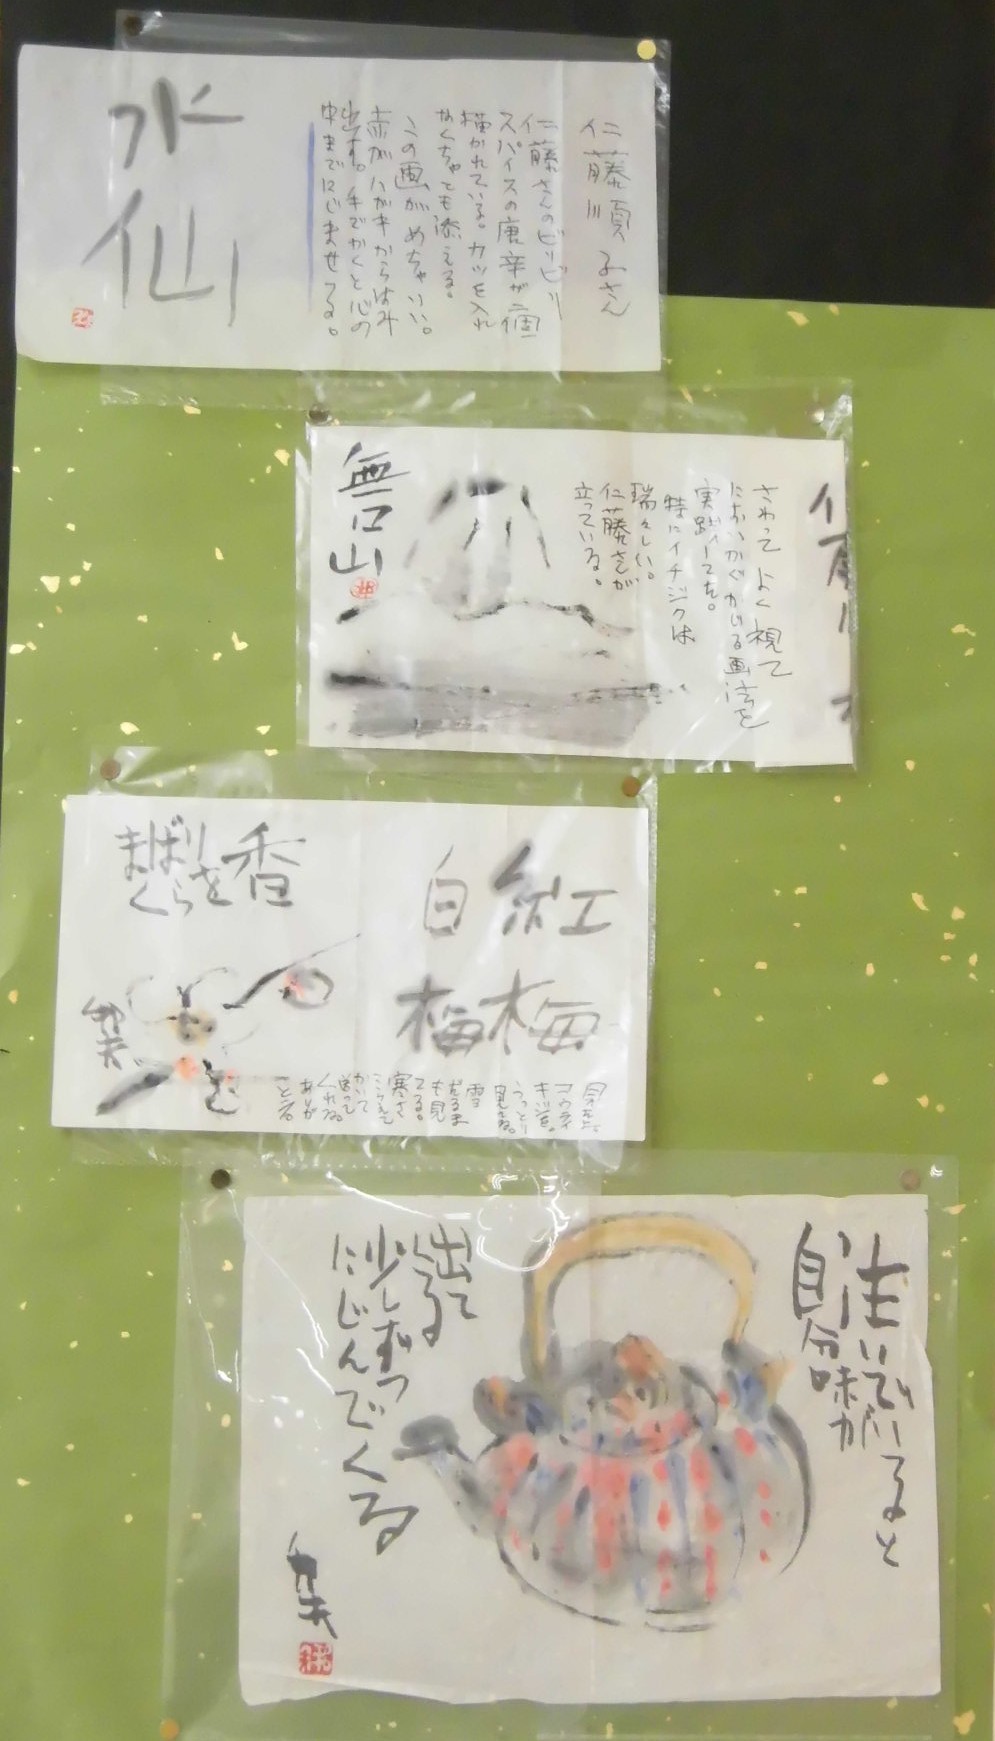 仁藤順子さん
仁藤さんのビリビリ
スパイスの唐辛が一個
描かれている。カツを入れ
なくちゃても添える。
この画がめちゃいい。
赤がハガキからはみ
出す。手でかくと心の
中までにじませてる。
水仙
さわって よく視て
においかぐかいる画法を
実践してた。
特にイチジクは
瑞々しい。
仁藤さんが
立っている。
無口山
紅梅
白梅
うっとり
見てる。
雪
だるま
も見
てる。
寒さ
こらえて
かいて
送って
くれる。
ありが
とう
香
りを
ばら
まく
生いていると
自分味が
出て
くる
少しずつ
にじんでくる